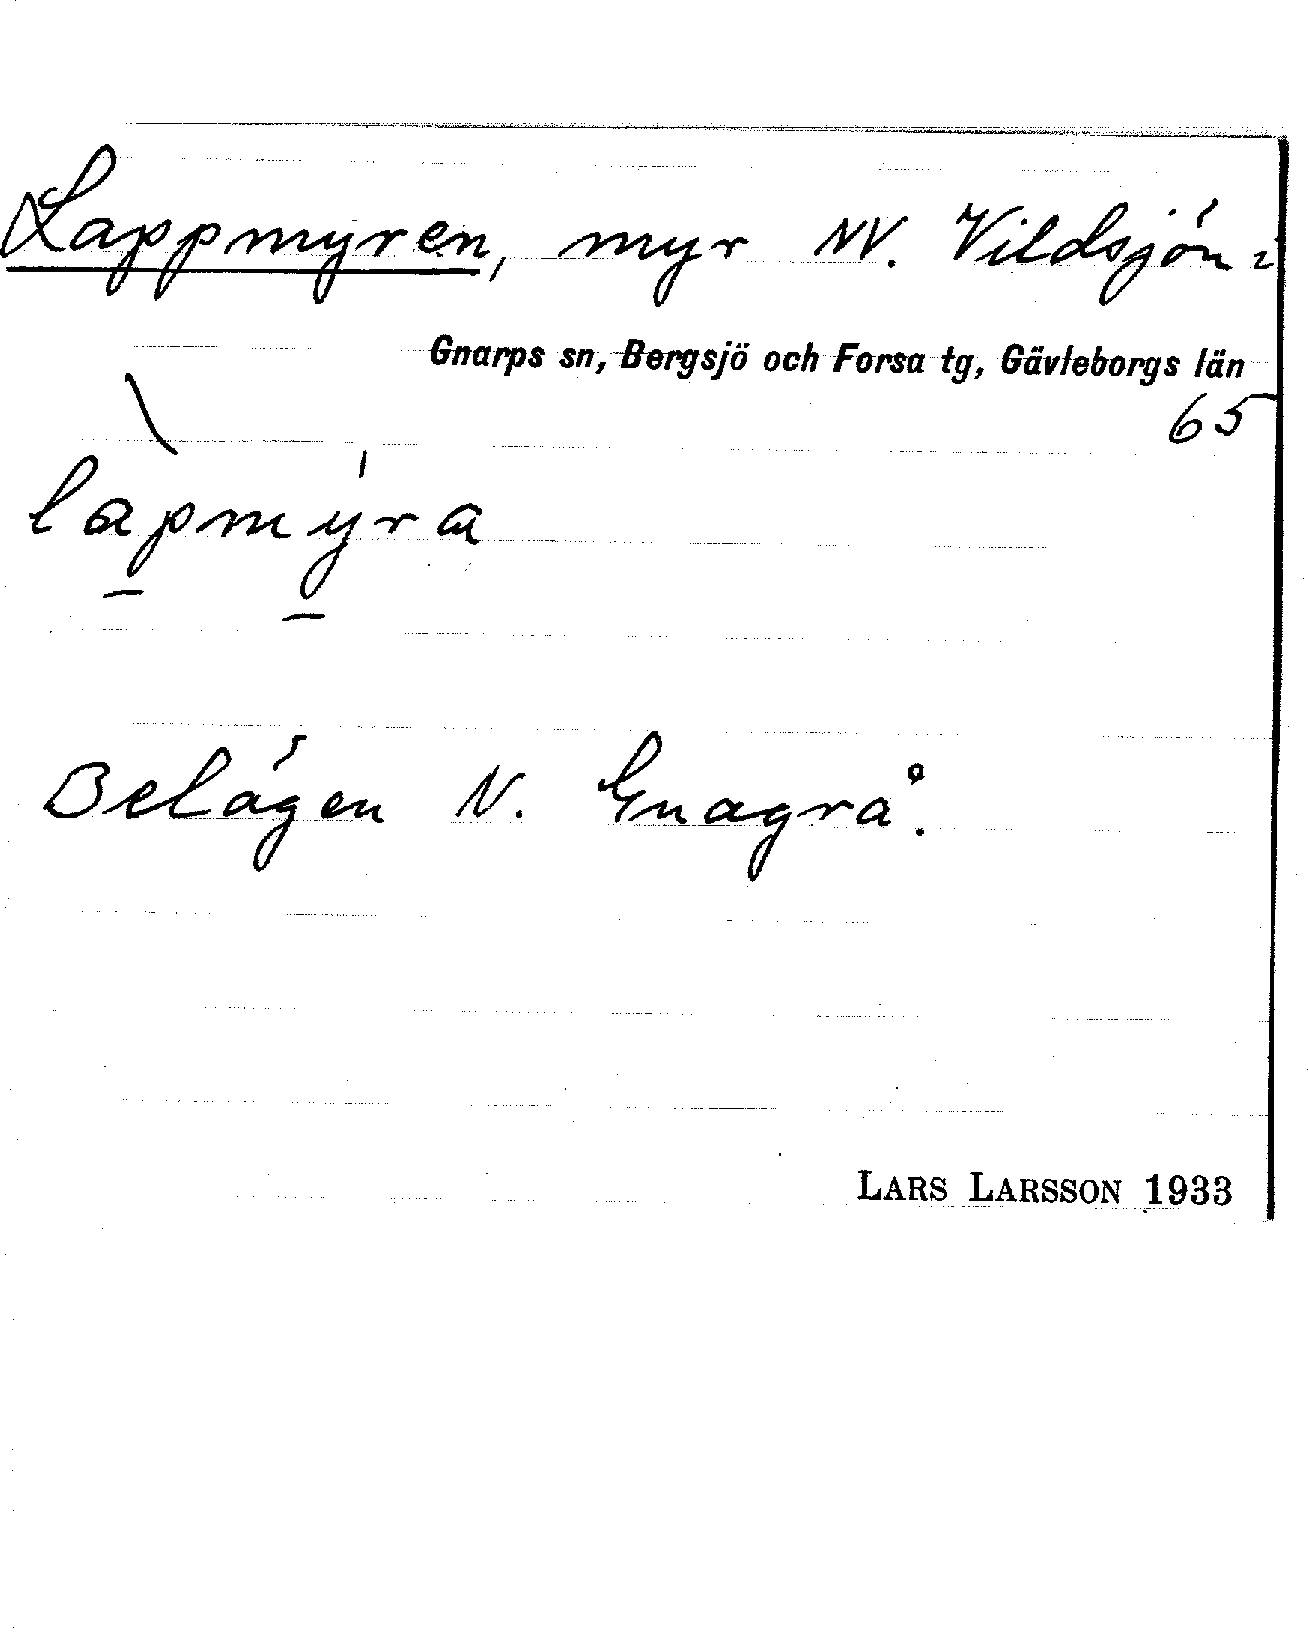 Lappmyren, myr NV. Vildsjön i
Gnarps sn, Bergsjö och Forsa tg, Gävleborgs län
65
lapmyra
Belägen N. Gnagrå.
LARS LARSSON 1933